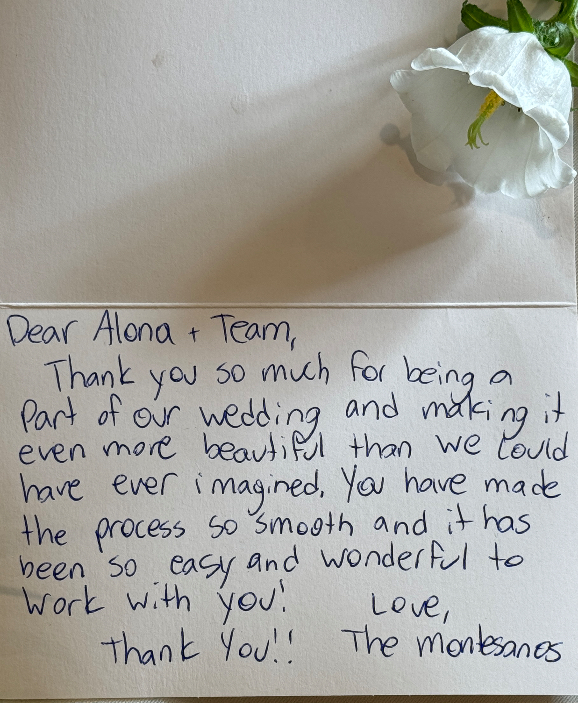 Dear Alona + Team,
Thank you so much for being a
Part of our wedding and making it
even more beautiful than we could
have ever imagined. You have made
the process so smooth and it has
been so easy and wonderful to
Work with you!
Love,
Thank You!!
The Montesanos